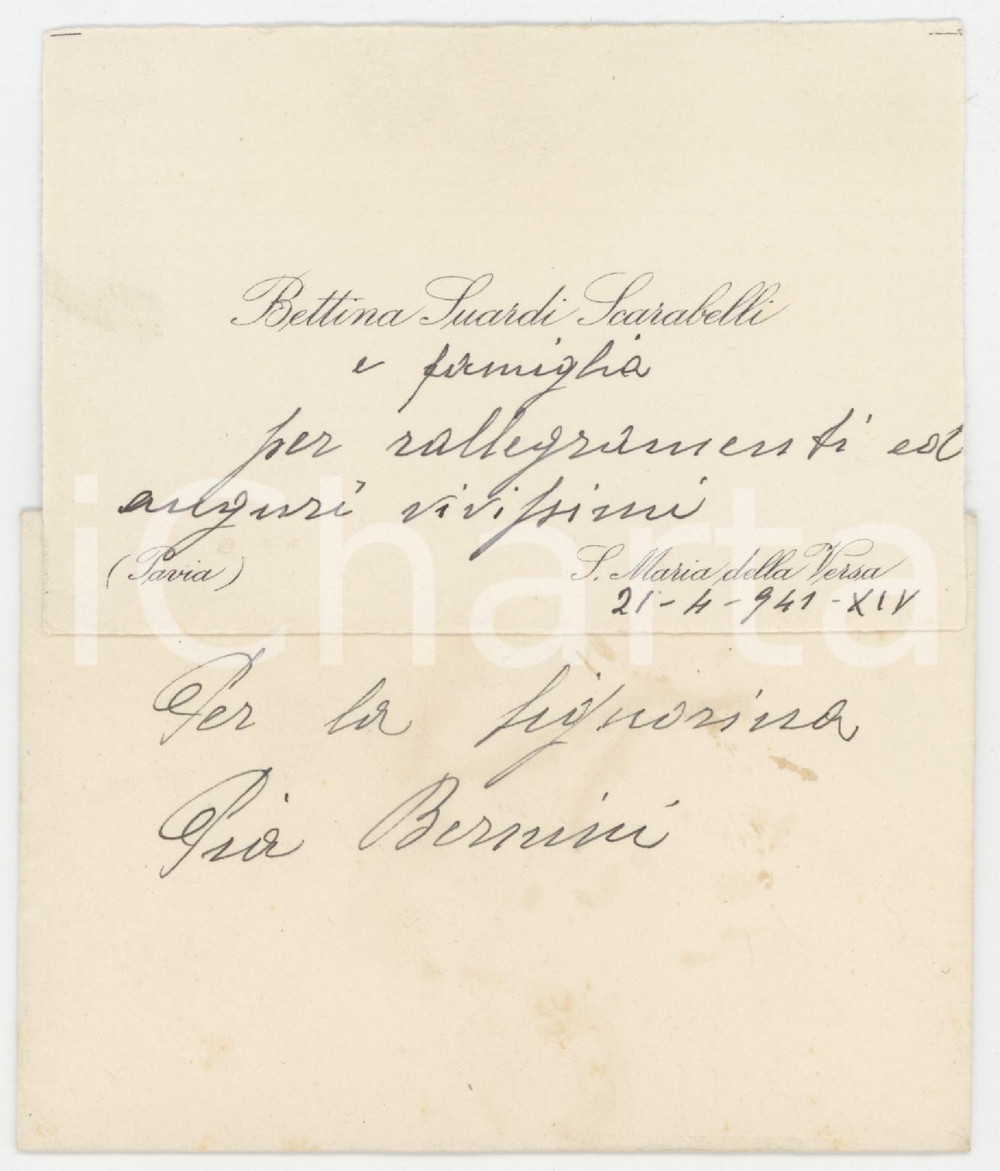 Bettina Suardi Scarabelli
e famiglia
per rallegramenti ed
augurî vivissimi
(Pavia)
S. Maria della Versa
21-4-941-XIV
iCharta
Per la signorina
Pia Bernini